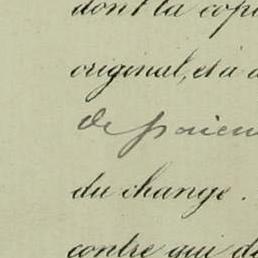 dont la copi
original, et à d
de paiem
du change.
contre qui de